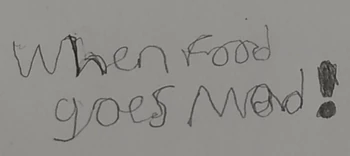 When Food
goes Mad!